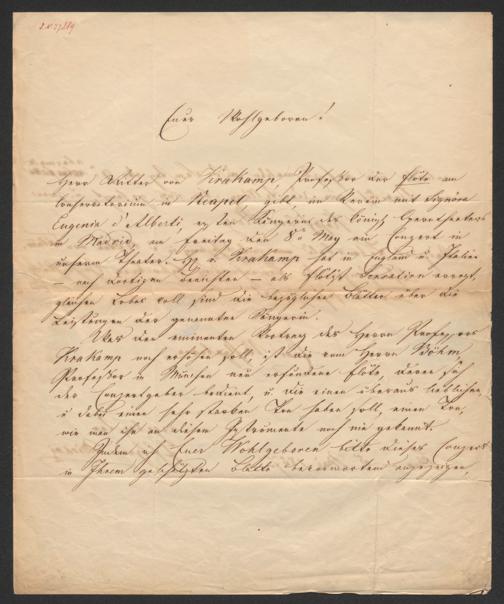 Euer Wohlgeboren!
Herr Ritter von Krakamp, Professor der Flöte am
Conservatorium in Neapel, gibt im Verein mit Signora
Eugenia d'Alberti, ersten Sängerin des Königl. Hoftheaters
in Madrid, am Freitag den 8n May ein Concert in
unserm Theater. H v Krakamp hat in England u Italien
– nach dortigen Berichten – als Flötist Sensation erregt,
gleichen Lobes voll sind die bezüglichen Blätter über die
Leistungen der genannten Sängerin.
Was den eminenten Vortrag des Herrn Professors
Krakamp noch erhöhen soll, ist die vom Herrn Böhm,
Professor in München neu erfundene Flöte, deren sich
der Concertgeber bedient, u. die einen überaus lieblichen
u dabei einen sehr starken Ton haben soll, einen Ton,
wie man ihn an diesem Instrumente noch nie gekannt.
Indem ich Euer Wohlgeboren bitte dieses Concert
in Ihrem geschätzten Blatte bevorwortend anzuzeigen,